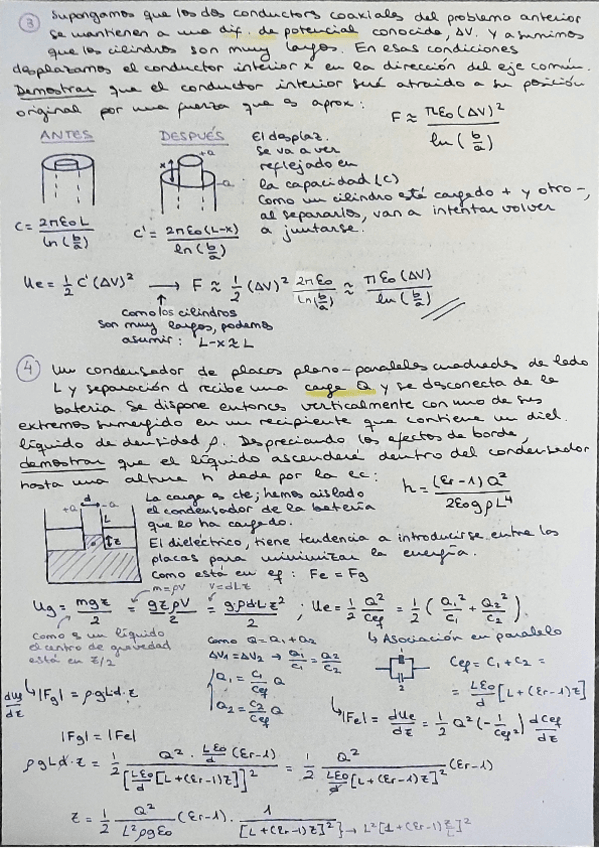 ③ Supongamos que los dos conductors coaxiales del problema anterior
se mantienen a una dif. de potencial conocida, ΔV. y asumimos
que los cilindros son muy largos. En esas condiciones
desplazamos el conductor interior x en la dirección del eje común.
Demostrar que el conductor interior será atraido a su posición
original por una fuerza que es aprox: F ≈ πε₀(ΔV)² / ln(b/a)
ANTES DESPUÉS El desplaz.
se va a ver
reflejado en
la capacidad (C)
x +Q -Q
Como un cilindro está cargado + y otro -,
al separarlos, van a intentar volver
a juntarse.
C = 2πε₀L / ln(b/a) C' = 2πε₀(L-x) / ln(b/a)
Ue = 1/2 C'(ΔV)² → F ≈ 1/2 (ΔV)² 2πε₀ / ln(b/a) ≈ πε₀(ΔV) / ln(b/a)
como los cilindros
son muy largos, podemos
asumir: L-x ≈ L
④ Un condensador de placas plano-paralelas cuadradas de lado
L y separación d recibe una carga Q y se desconecta de la
batería. Se dispone entonces verticalmente con uno de sus
extremos sumergido en un recipiente que contiene un diel.
líquido de densidad ρ. Despreciando los efectos de borde,
demostrar que el líquido ascenderá dentro del condensador
hasta una altura h dada por la ec: h = (εr-1)Q² / 2ε₀gρL⁴
d +Q -Q L z
La carga es cte; hemos aislado
el condensador de la batería
que lo ha cargado.
El dieléctrico, tiene tendencia a introducirse entre las
placas para minimizar la energía.
Como está en eq: Fe = Fg
m=ρV V=dLz
Ug = mgz/2 = gzρV/2 = gρdLz²/2 ; Ue = 1/2 Q²/Ceq = 1/2 (Q₁²/C₁ + Q₂²/C₂).
como es un líquido
el centro de gravedad
está en z/2
Como Q = Q₁ + Q₂
ΔV₁ = ΔV₂ → Q₁/C₁ = Q₂/C₂
Q₁ = C₁/Ceq Q
Q₂ = C₂/Ceq Q
↳ Asociación en paralelo
2
Ceq = C₁ + C₂ =
= Lε₀/d [L + (εr-1)z]
dUg/dz ↳ |Fg| = ρgLd·z
↳ |Fe| = dUe/dz = 1/2 Q² (-1/Ceq²) dCeq/dz
|Fg| = |Fe|
ρgLd·z = 1/2 Q² · Lε₀/d (εr-1) / [Lε₀/d [L + (εr-1)z]]² = 1/2 Q² / Lε₀/d [L + (εr-1)z]² (εr-1)
z = 1/2 Q² / L²ρgε₀ (εr-1) · 1 / [L + (εr-1)z]² } → L² [1 + (εr-1) z/L]²